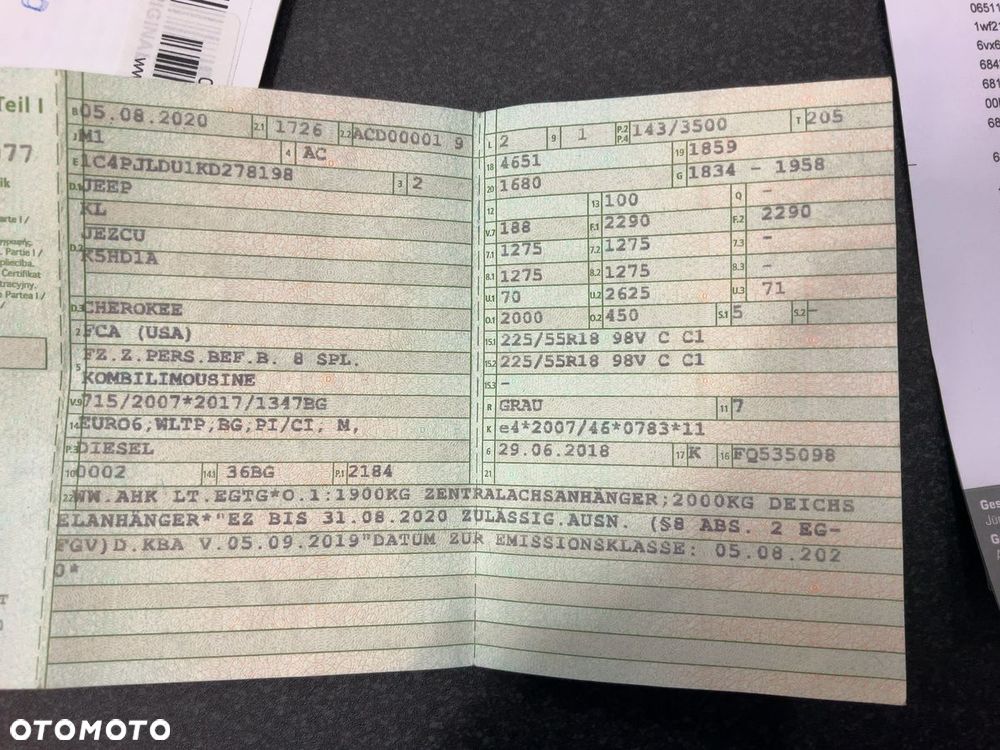 ORIGINA
WW
Teil I
77
ik
arte I /
Partie I /
Certifikat
Partea I /
B 05.08.2020 2.1 1726 2.2 ACD00001 9
J M1 4 AC
E 1C4PJLDU1KD278198 3 2
D.1 JEEP
KL
D.2 JEZCU
K5HD1A
D.3 CHEROKEE
2 FCA (USA)
5 FZ.Z.PERS.BEF.B. 8 SPL.
KOMBILIMOUSINE
V.9 715/2007*2017/1347BG
14 EURO6;WLTP;BG;PI/CI, M,
P.3 DIESEL
10 0002 14.1 36BG P.1 2184
L 2 9 1 P.2 P.4 143/3500 T 205
18 4651 19 1859
20 1680 G 1834 - 1958
12 13 100 Q -
V.7 188 F.1 2290 F.2 2290
7.1 1275 7.2 1275 7.3 -
8.1 1275 8.2 1275 8.3 -
U.1 70 U.2 2625 U.3 71
O.1 2000 O.2 450 S.1 5 S.2 -
15.1 225/55R18 98V C C1
15.2 225/55R18 98V C C1
15.3 -
R GRAU 11 7
K e4*2007/46*0783*11
6 29.06.2018 17 K 16 FQ535098
21
22 WW.AHK LT.EGTG*O.1:1900KG ZENTRALACHSANHÄNGER;2000KG DEICHS
ELANHÄNGER*"EZ BIS 31.08.2020 ZULÄSSIG.AUSN. (§8 ABS. 2 EG-
FGV)D.KBA V.05.09.2019"DATUM ZUR EMISSIONSKLASSE: 05.08.202
0*
06511
1wf21
6vx6
684
681
00
68
Ges
OTOMOTO